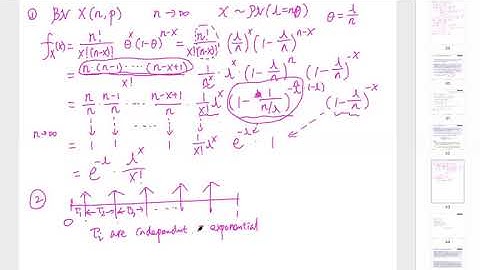 ① BN X(n,p) n→∞ X ~ PN(λ=nθ) θ = λ/n
f_X(x) = n!/(x!(n-x)!) θ^x (1-θ)^(n-x) = n!/(x!(n-x)!) (λ/n)^x (1-λ/n)^(n-x)
= n·(n-1)·⋯·(n-x+1)/x! · 1/n^x · λ^x (1-λ/n)^n (1-λ/n)^(-x)
= n/n · n-1/n ⋯ n-x+1/n · 1/x! λ^x (1-1/(n/λ)) (-λ) (1-λ/n)^(-x)
n→∞ ↓ ↓ ↓ ↓
1 1 1 1/x! λ^x e^(-λ) · 1
= e^(-λ) · λ^x/x!
②
0 T₁ T₂ T₃ ⋯
Tᵢ are independent exponential